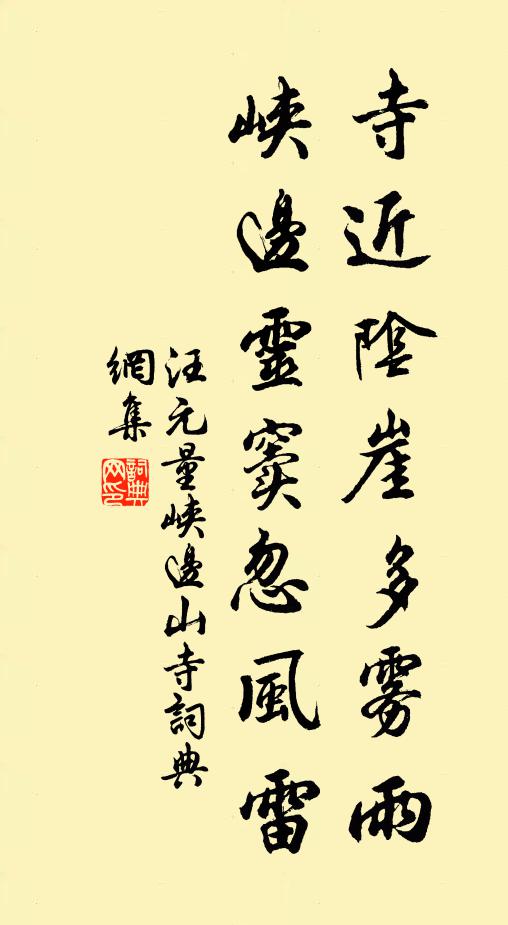 寺近陰崖多雾雨
峽邊靈竇忽風雷
汪元量峽邊山寺詞典
網集
詞典
网印